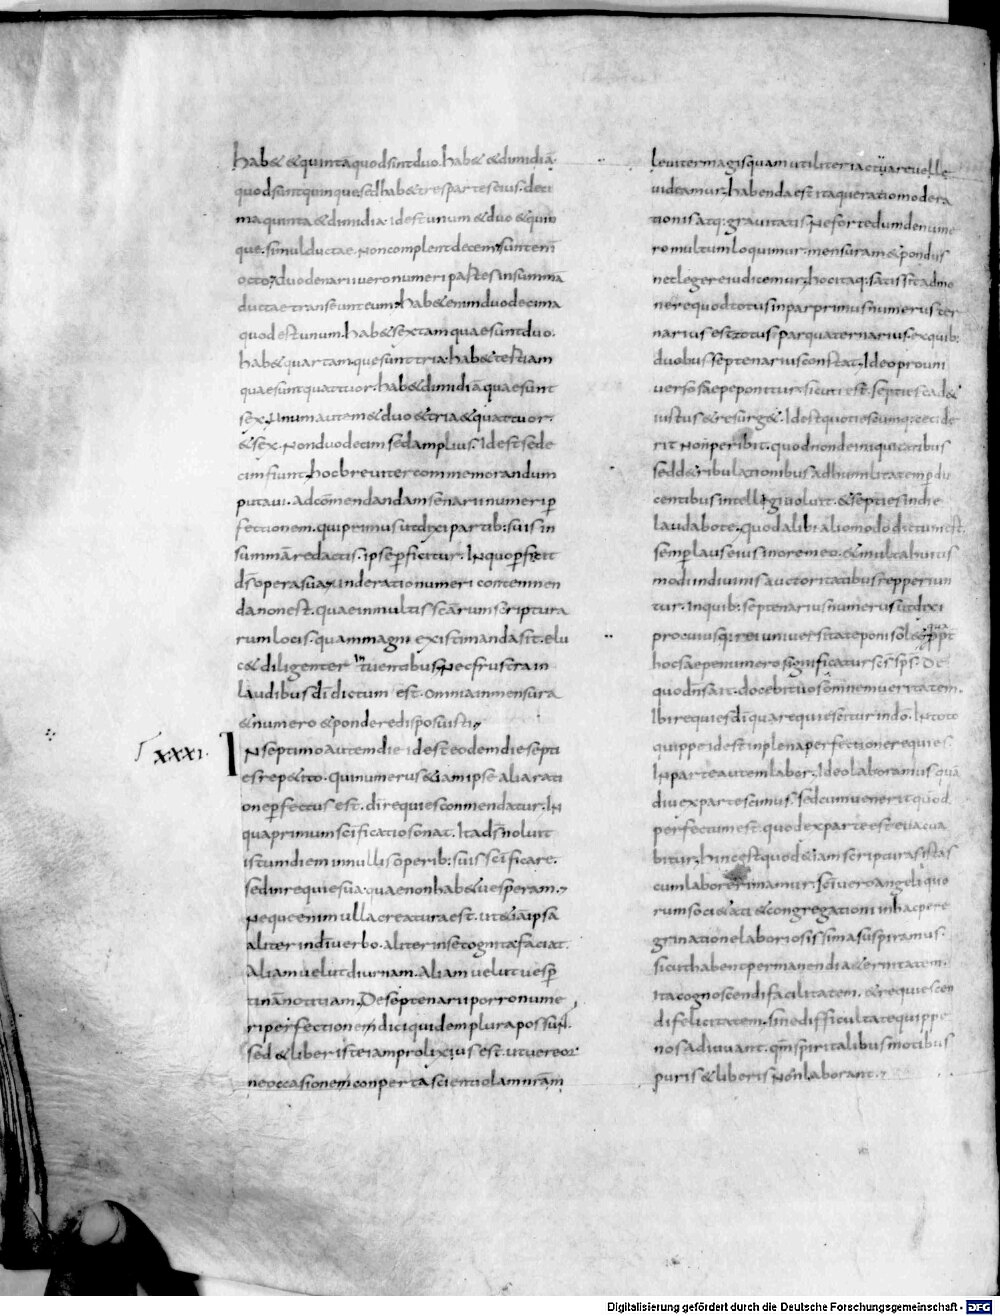 hab& & quinta quod sint duo. hab& & dimidiā.
quod sunt quinque. sed hab& tres partes eius. deci
ma quinta & dimidia. id est unum & duo & quin
que. simul ductae. Non complent decem. sunt enī
octo. duodenarii vero numeri partes in summa
ductae transeunt eum. hab& enim duodecima
quod est unum. hab& sextam quae sunt duo.
hab& quartam. que sunt tria. hab& tertiam
quae sunt quattuor. hab& dimidiā quae sunt
sex. Unum autem & duo & tria & quattuor.
& sex. Non duodecim sed amplius. id est sede
cim fiunt. hoc breviter commemorandum
putavi. ad cōmendandam senarii numeri p̄
fectionem. qui primus ut dixi partib: suis in
summā redactis. ipse p̄ficitur. In quo p̄ficit
d̄s opera sua. unde ratio numeri contemnen
da non est. quae in multis s̄carum scriptura
rum locis. quam magni existimanda sit. elu
c& diligenter intuentibus. Nec frustra in
laudibus dī dictum est. omnia in mensura
& numero & pondere disposuisti.
XXXI. IN septimo autem die id est eodem die septi
es rep&ito. Qui numerus &iam ipse alia rati
one p̄fectus est. dī requies commendatur. In
qua primum sc̄ificatio sonat. Ita d̄s noluit
istum diem in ullis operib: suis sc̄ificare.
sed in requie sua. quae non hab& vesperam.
Neque enim ulla creatura est. ut &iā ipsa
aliter in dī verbo. aliter in se cognita faciat.
Aliam velut diurnam. Aliam velut vesp̄
tinā notitiam. De septenarii porro nume
ri perfectione dici quidem plura possunt.
sed & liber iste iam prolixius est. ut vereor
ne occasionem comperta scientiolam nr̄am
leviter magis quam utiliter iactuare velle
videamur. habenda est itaque ratio modera
tionis atq: gravitatis. Ne forte dum de nume
ro multum loquimur. mensuram & pondus
neclegere iudicemur. hoc itaq: satis sit admo
nere quod totus inpar primus numerus ter
narius est. totus par quaternarius. ex quib:
duobus septenarius constat. Ideo pro uni
verso saepe ponitur. sicuti est. septies cad&
iustus & resurg&. Id est quotiescunq: cecide
rit non peribit. quod non de iniquitatibus
sed de tribulationibus ad humilitatem p̄du
centibus intellegi voluit. & septies in die
laudabo te. quod alibi alio modo dictum est.
semper laus eius in ore meo. & multa huius
modi in divinis auctoritatibus repperiun
tur. In quib: septenarius numerus ut dixi
pro cuiusq: rei universitate poni sol&. qua p̄pt̄
hoc saepe numero significatur sc̄s sp̄s. De
quo dn̄s ait. docebit vos omnem veritatem.
Ibi requies dī qua requiescitur in dō. In toto
quippe id est in plena perfectione requies.
In parte autem labor. Ideo laboramus quā
diu ex parte scimus. sed cum venerit quod
perfectum est. quod ex parte est evacua
bitur. hinc est quod &iam scripturas istas
cum labore rimamur. Sc̄i vero angeli quo
rum soci&ati & congregationi in hac pere
grinatione laboriosissima suspiramus.
sicut habent permanendi a&ernitatem.
Ita cognoscendi facilitatem. & requiescen
di felicitatem. sine difficultate quippe
nos adiuvant. qm̄ spiritalibus motibus
puris & liberis non laborant.
Digitalisierung gefördert durch die Deutsche Forschungsgemeinschaft - DFG